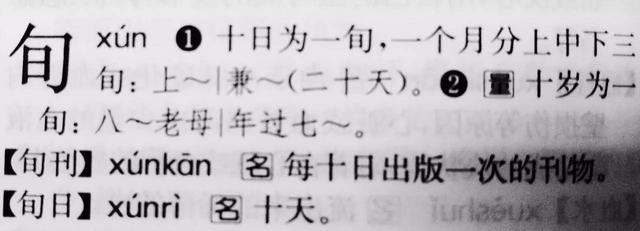 旬 xún ❶ 十日为一旬，一个月分上中下三
旬：上～|兼～(二十天)。❷ 量 十岁为一
旬：八～老母|年过七～。
【旬刊】xúnkān 名 每十日出版一次的刊物。
【旬日】xúnrì 名 十天。